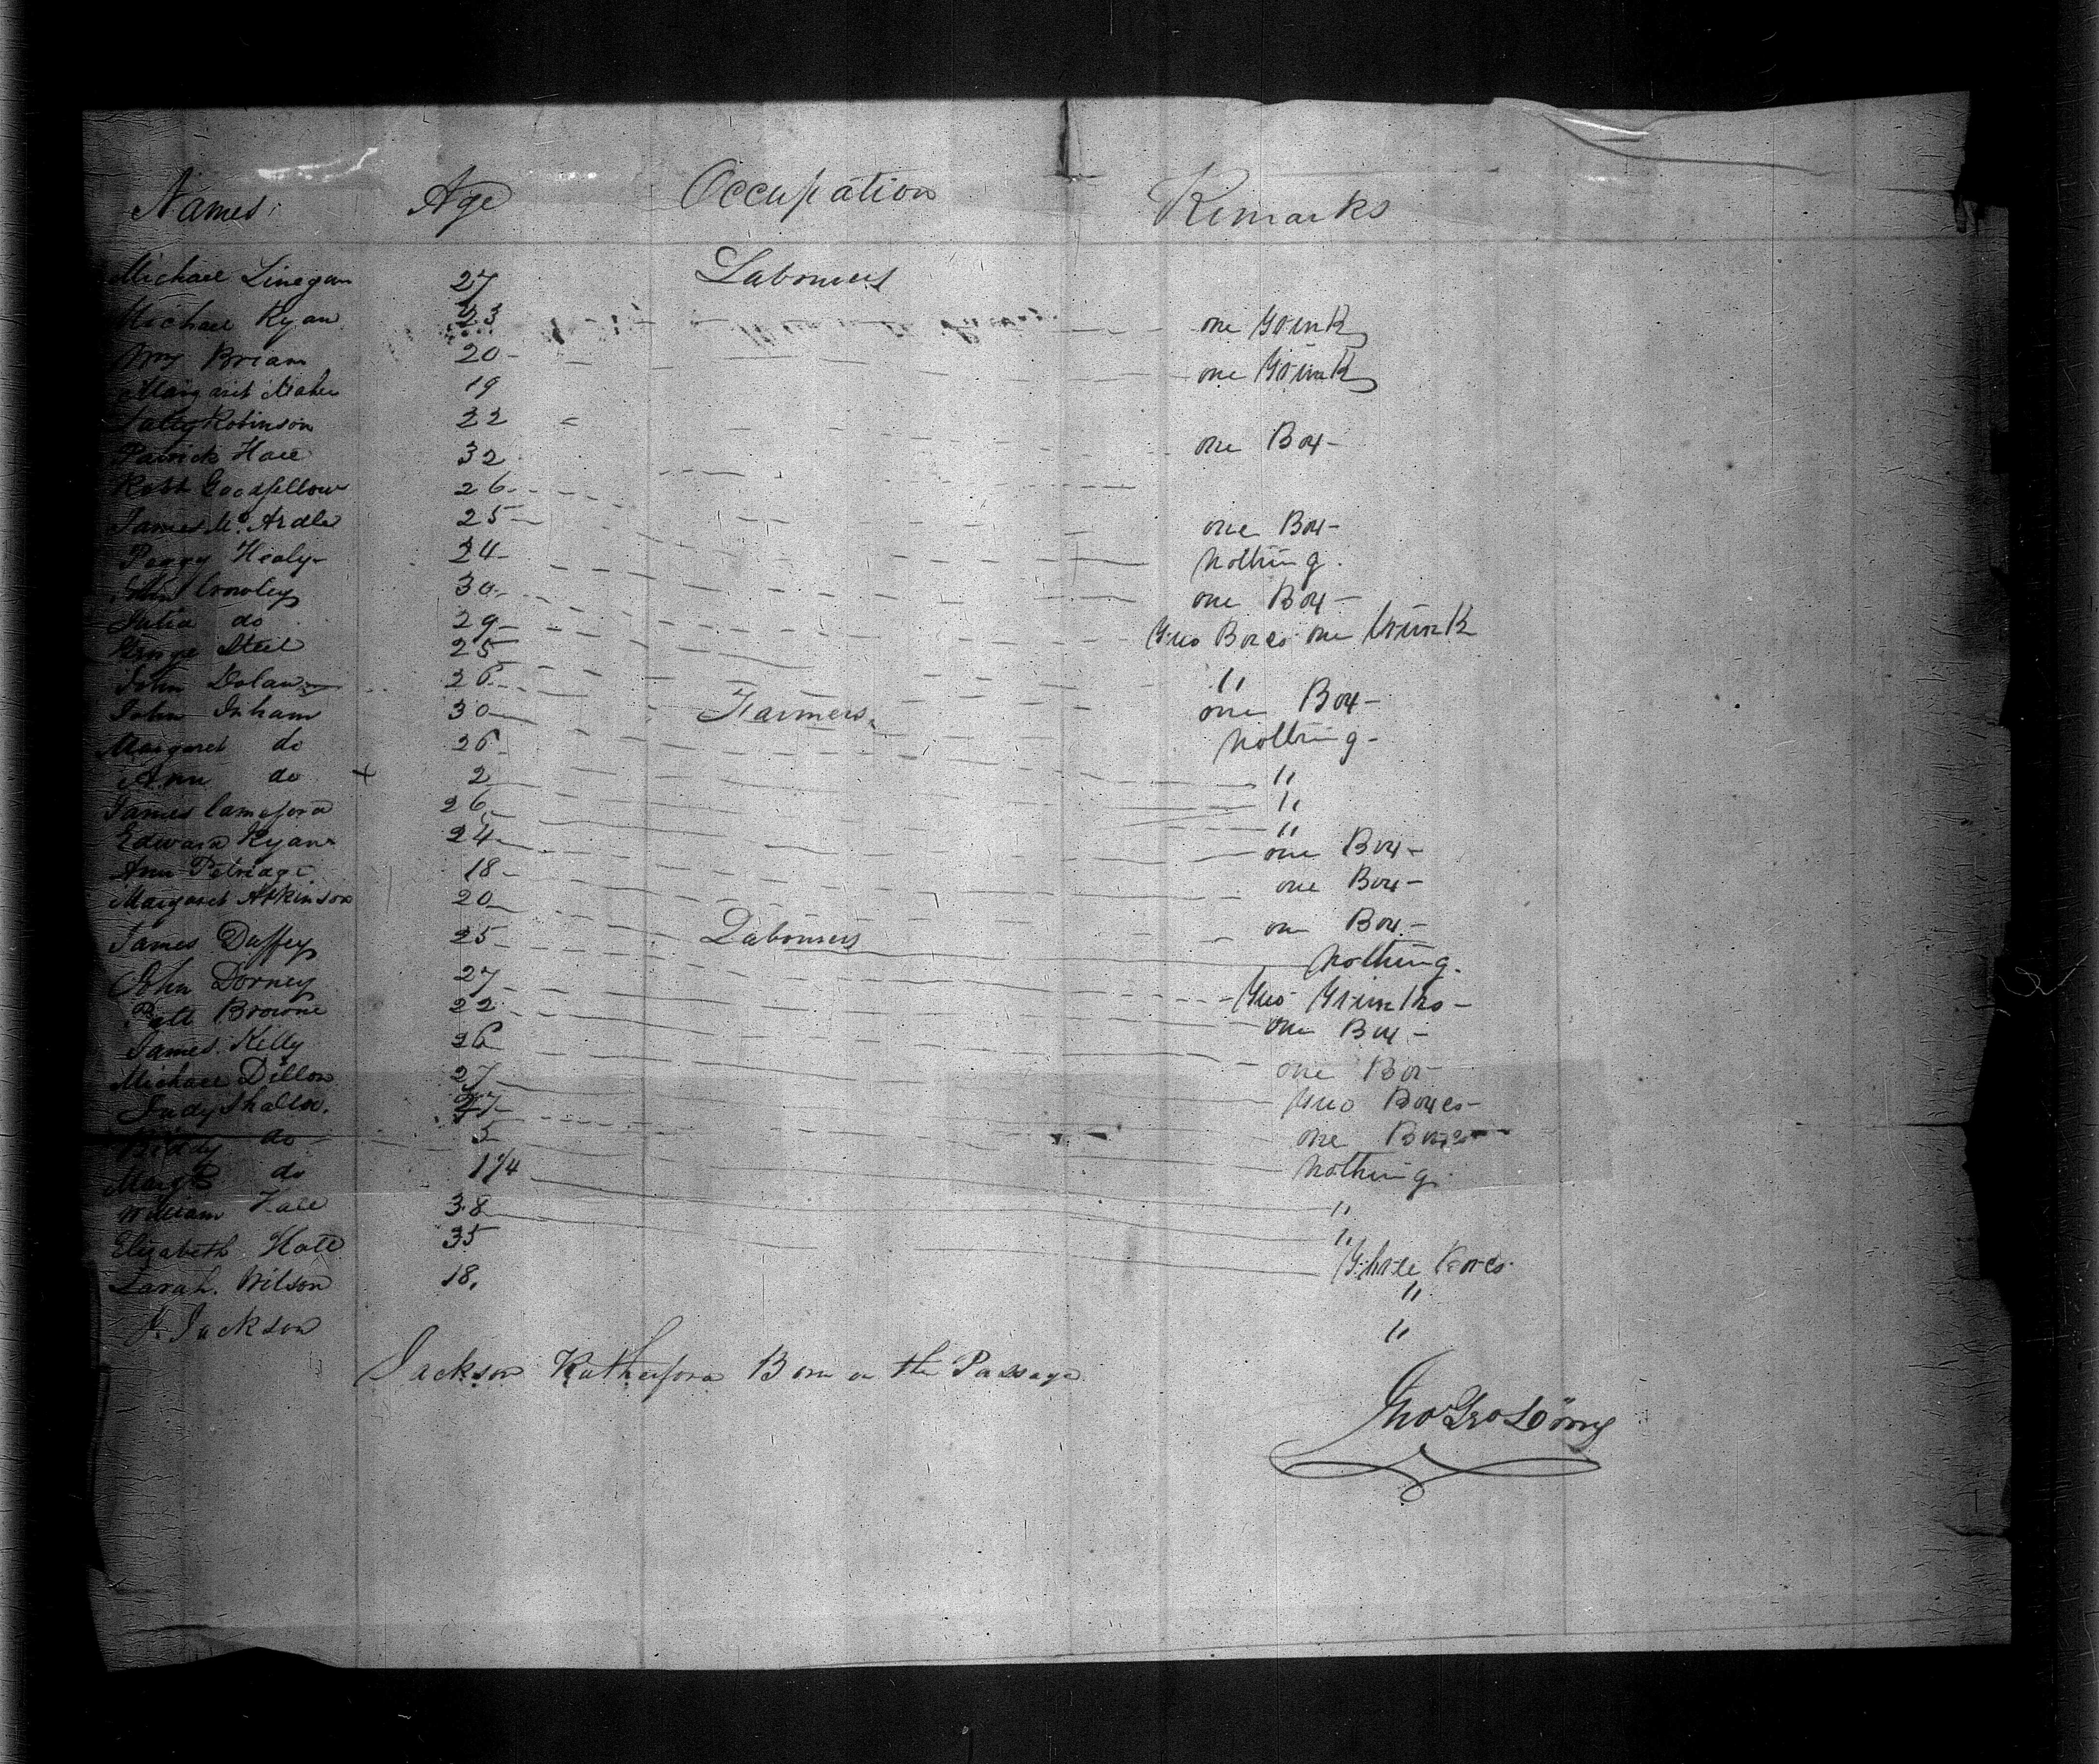 Names Age Occupation Remarks
Michael Linegan 27 Labourers
Michael Ryan 23 one Trunk
Wm Brian 20 one Trunk
Margaret Maher 19
Sally Robinson 22 one Box
Patrick Hall 32
Robt Goodfellow 26
James McArdle 25 one Box
Peggy Healy 24 Nothing
John Crowley 30 one Box
Julia do 29 Two Boxes one trunk
George Steel 25
John Dolan 26 "
John Inham 30 Farmers one Box
Margaret do 26 Nothing
Ann do + 2 "
James 26 "
Edward Ryan 24 "
Ann Petridge 18 one Box
Margaret Atkinson 20 one Box
James Duffey 25 Labourers one Box
John Dorney 27 Nothing
Patt Browne 22 Two Trunks
James Kelly 26 one Box
Michael Dillon 27 one Box
Judy Shallo. 27 Two Boxes
Biddy do 5 one Box
Margt do 1 1/4 Nothing
William Hall 38 "
Elizabeth Hall 35 "
Sarah Wilson 18. Three Boxes
J. Jackson "
"
Jackson Rutherford Born on the Passage
Jno Geo